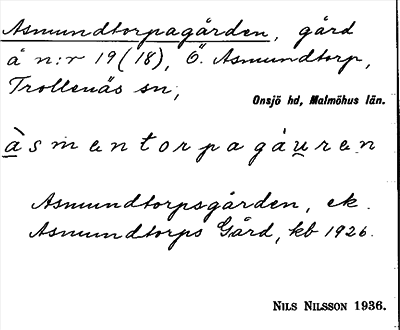 Asmundtorpagården, gård
å n:r 19 (18), Ö. Asmundtorp,
Trollenäs sn,
Onsjö hd, Malmöhus län.
àsmentorpagáu̯ren
Asmundtorpsgården, ek.
Asmundtorps Gård, kb 1926.
NILS NILSSON 1936.